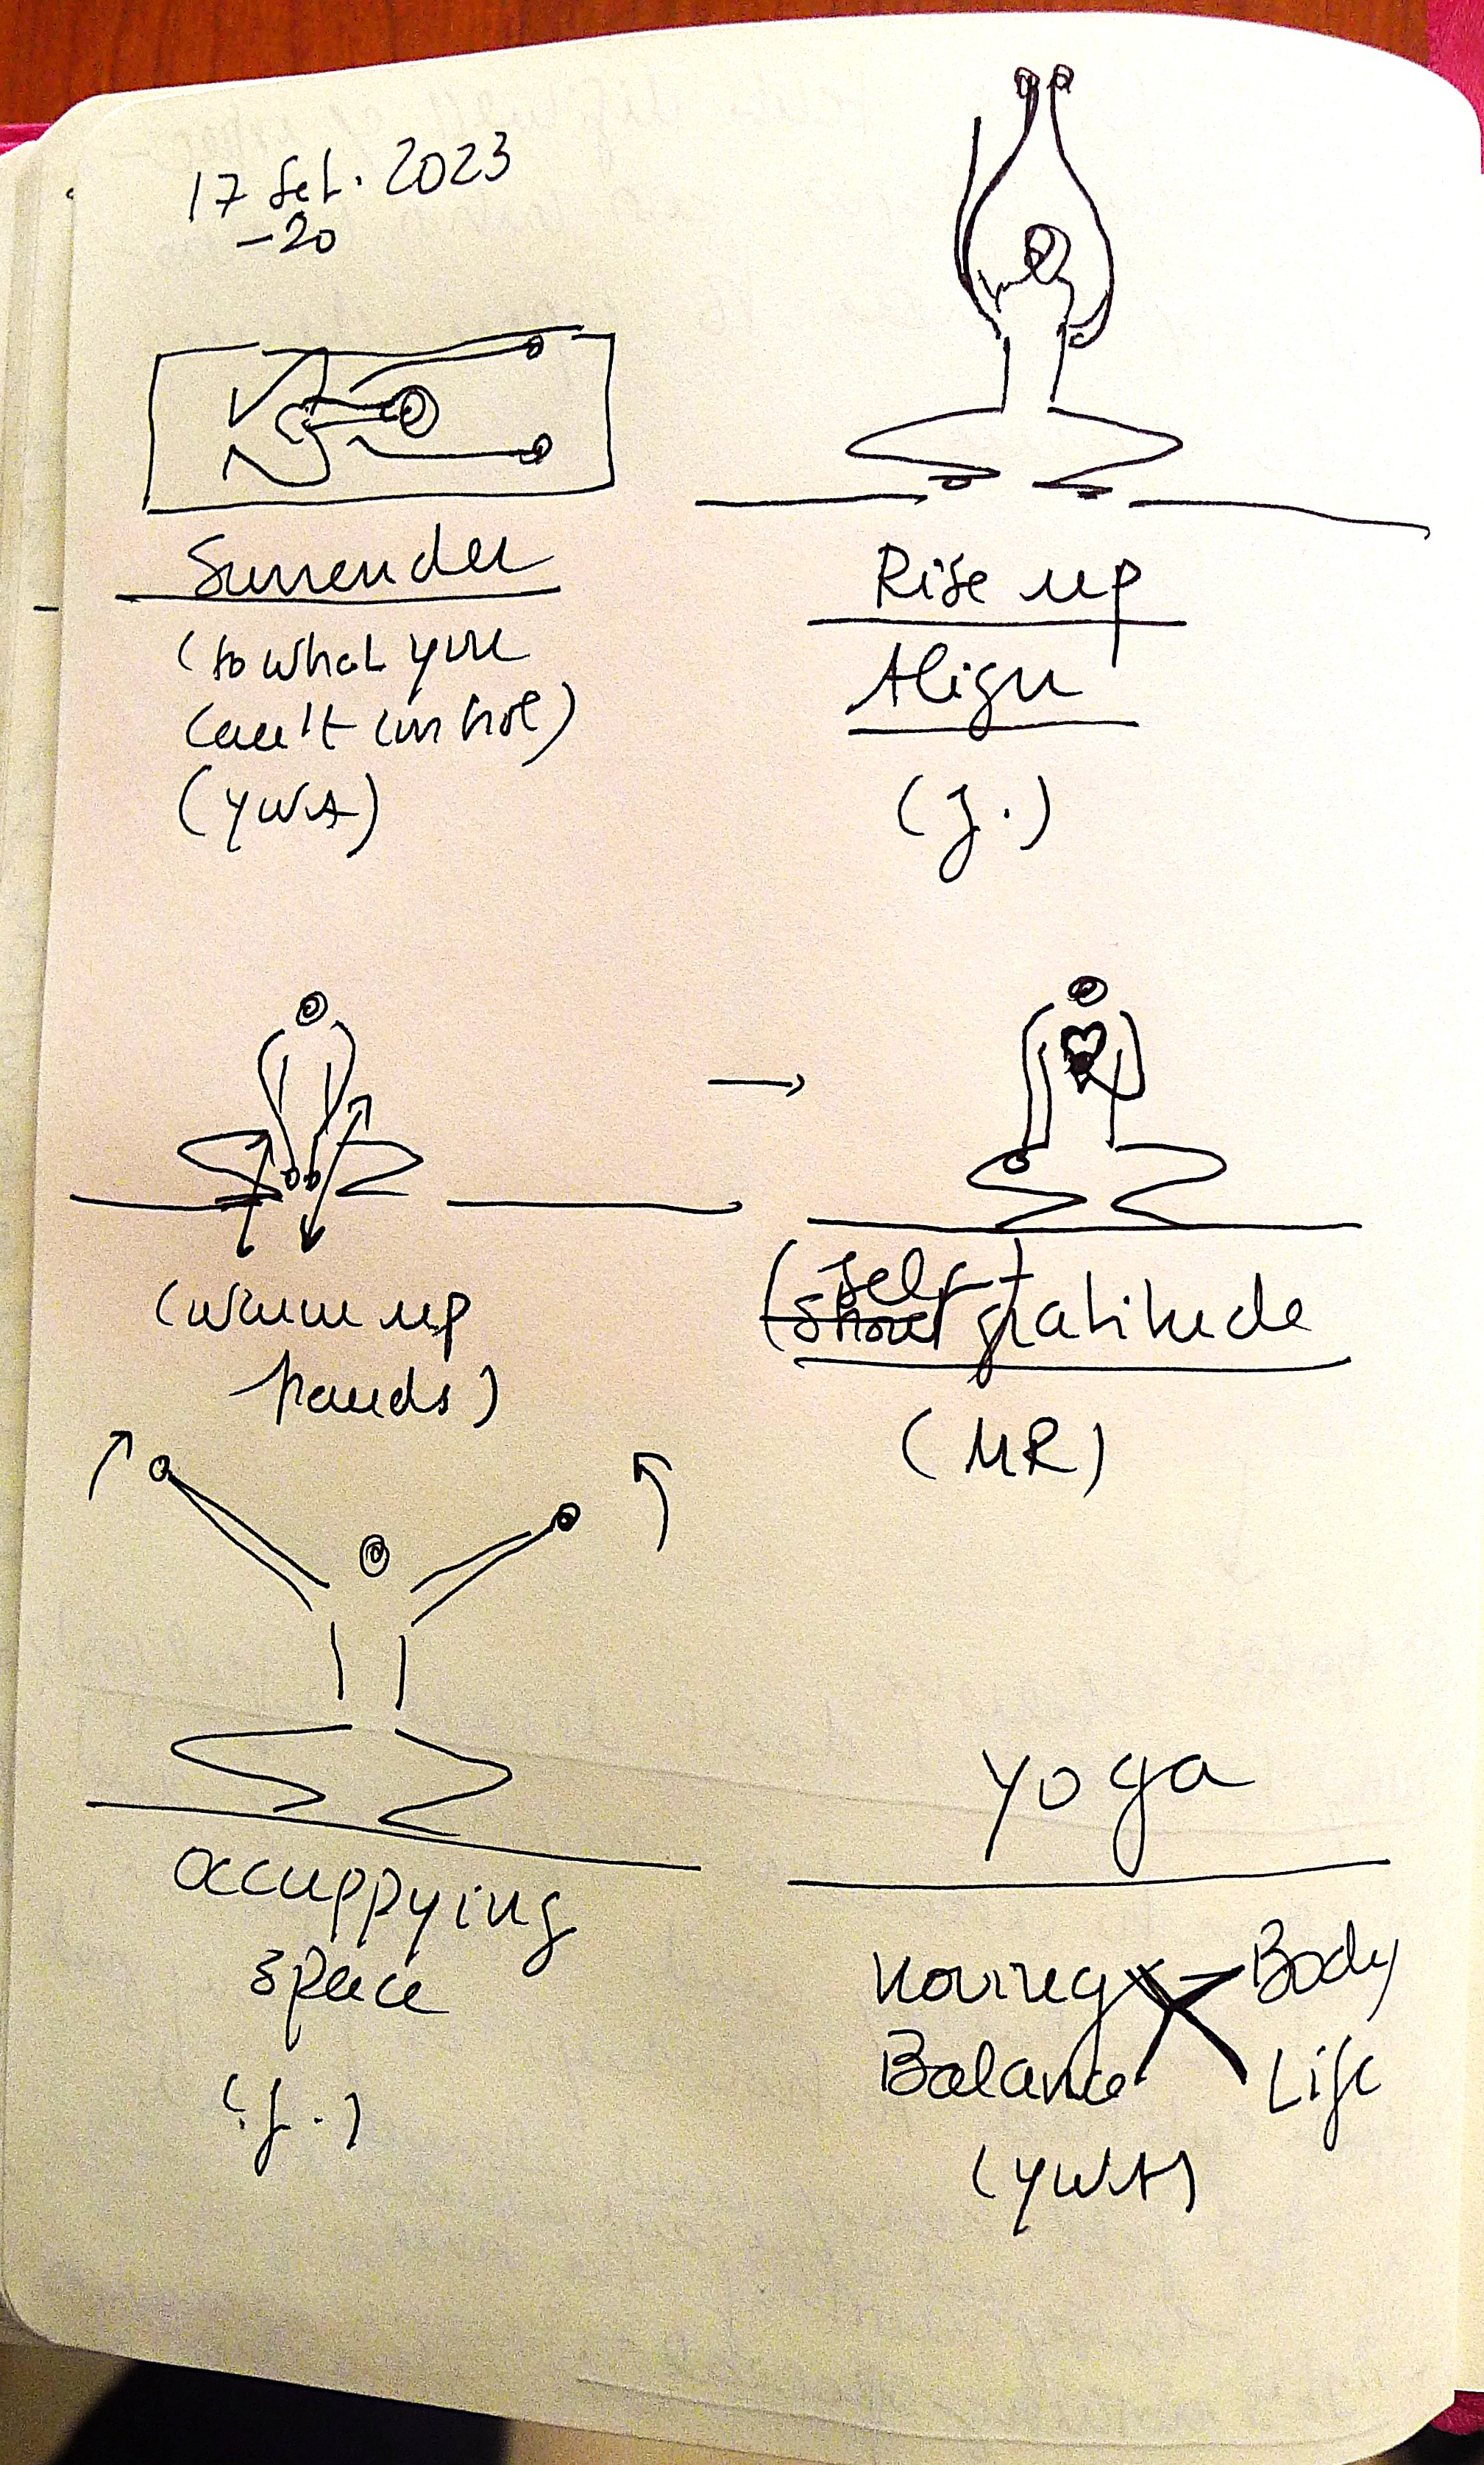 17 Set. 2023
-20
Surrender
(to what you
can't control)
(YWA)
Rise up
Align
(J.)
(warm up
hands)
self+
(shout gratitude
(MR)
occuppying
space
(J.)
yoga
Moving Body
Balance Life
(YWA)